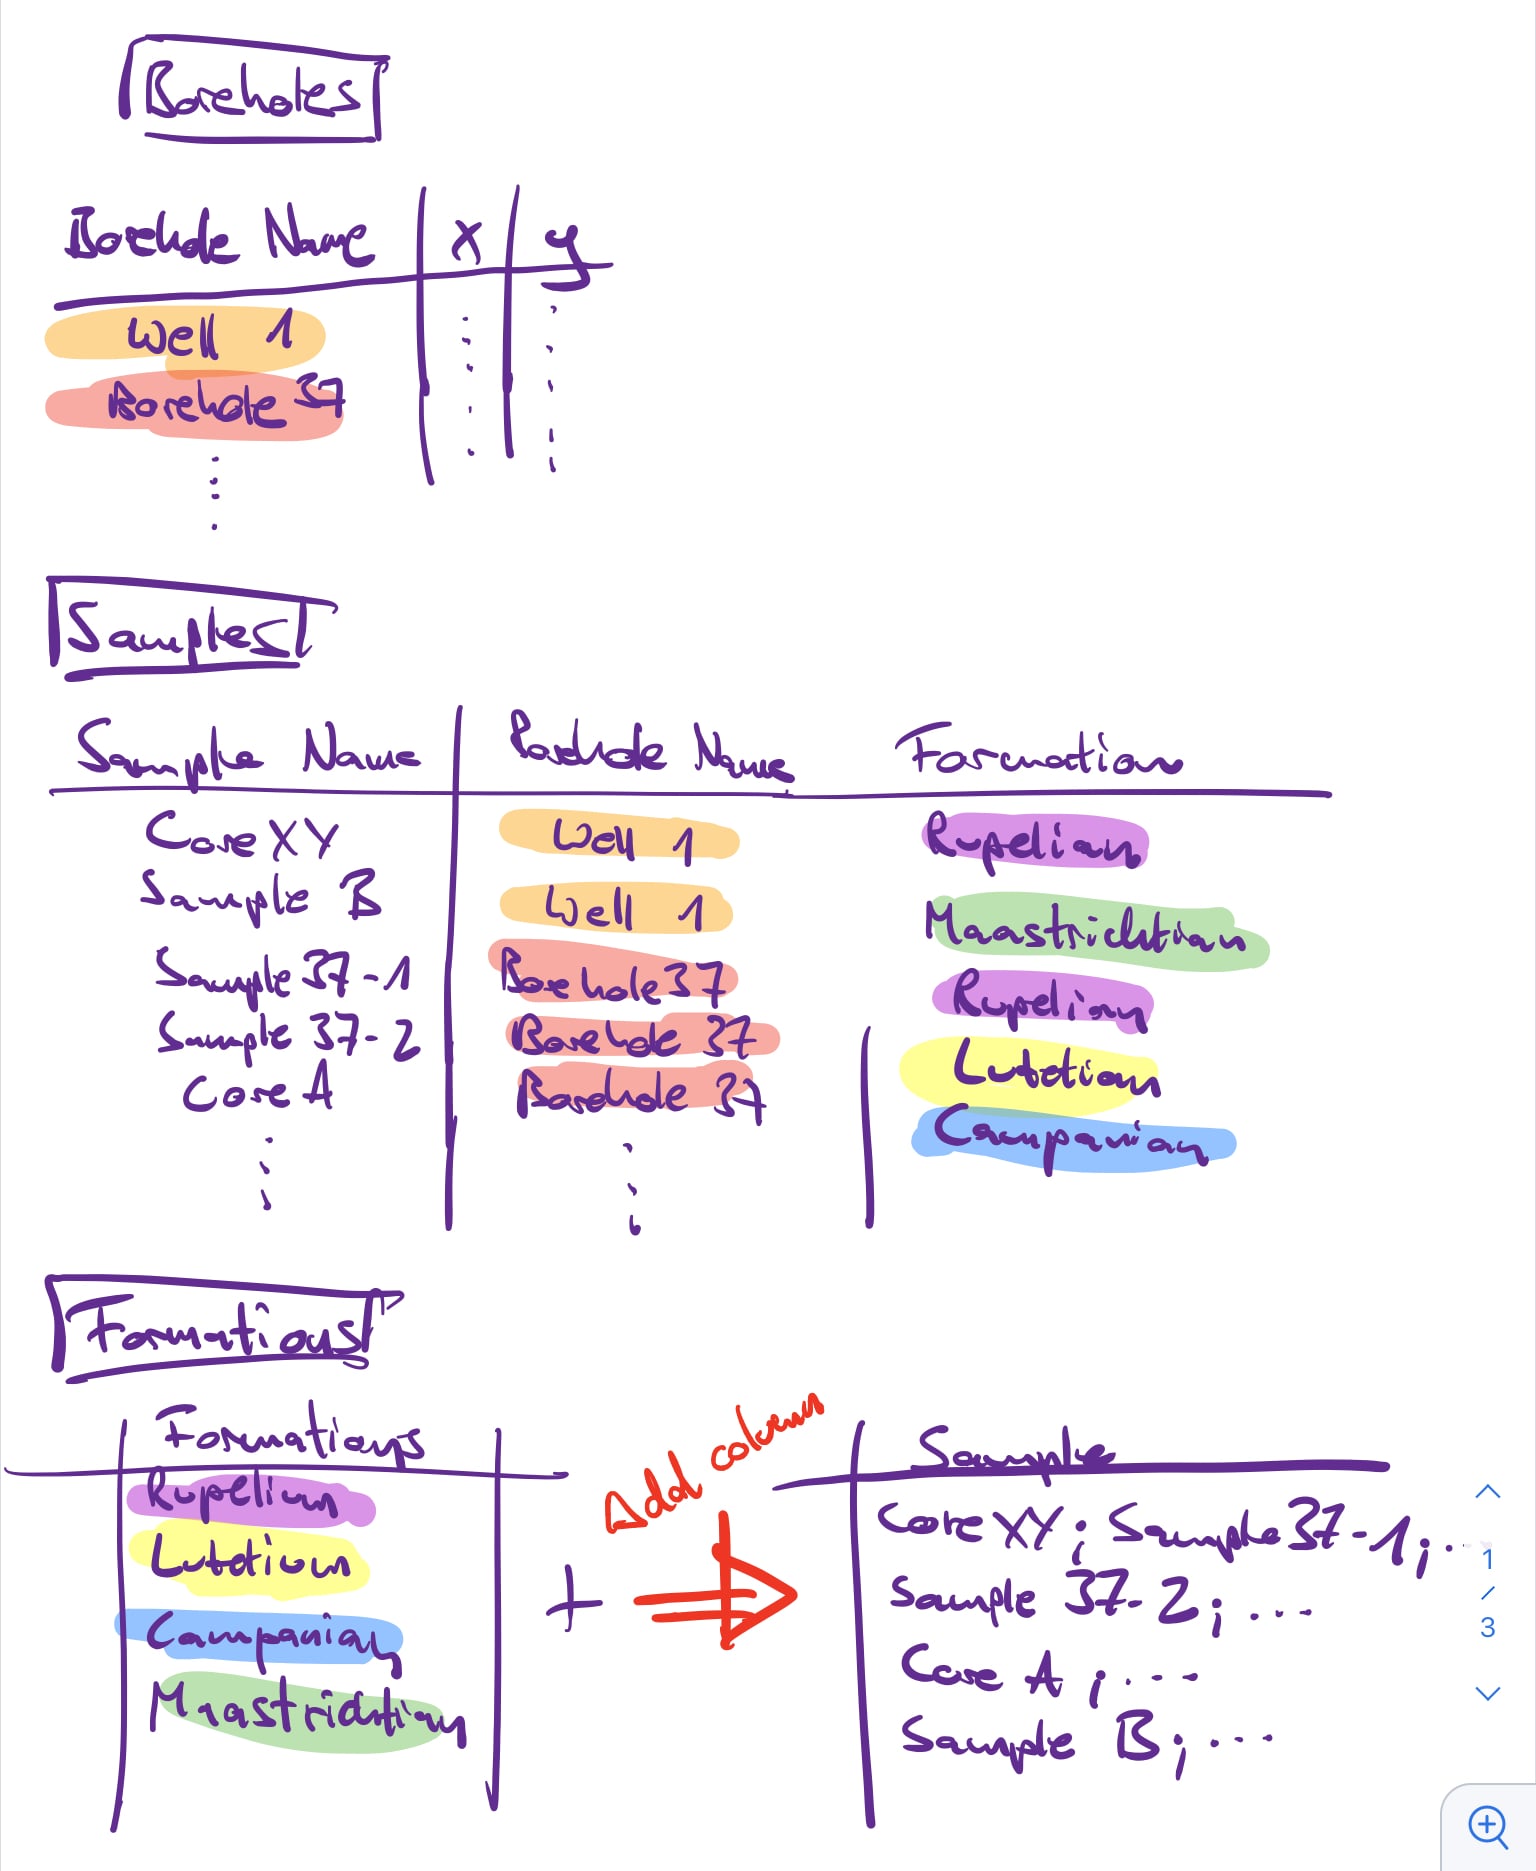 Boreholes
Borehole Name x y
Well 1
Borehole 37
Samples
Sample Name Borehole Name Formation
Core XY Well 1 Rupelian
Sample B Well 1 Maastrichtian
Sample 37-1 Borehole 37 Rupelian
Sample 37-2 Borehole 37 Lutetian
Core A Borehole 37 Campanian
Formations
Formations + Add column Sample
Rupelian Core XY; Sample 37-1; ..
Lutetian Sample 37-2; ...
Campanian Core A; ...
Maastrichtian Sample B; ...
1
/
3